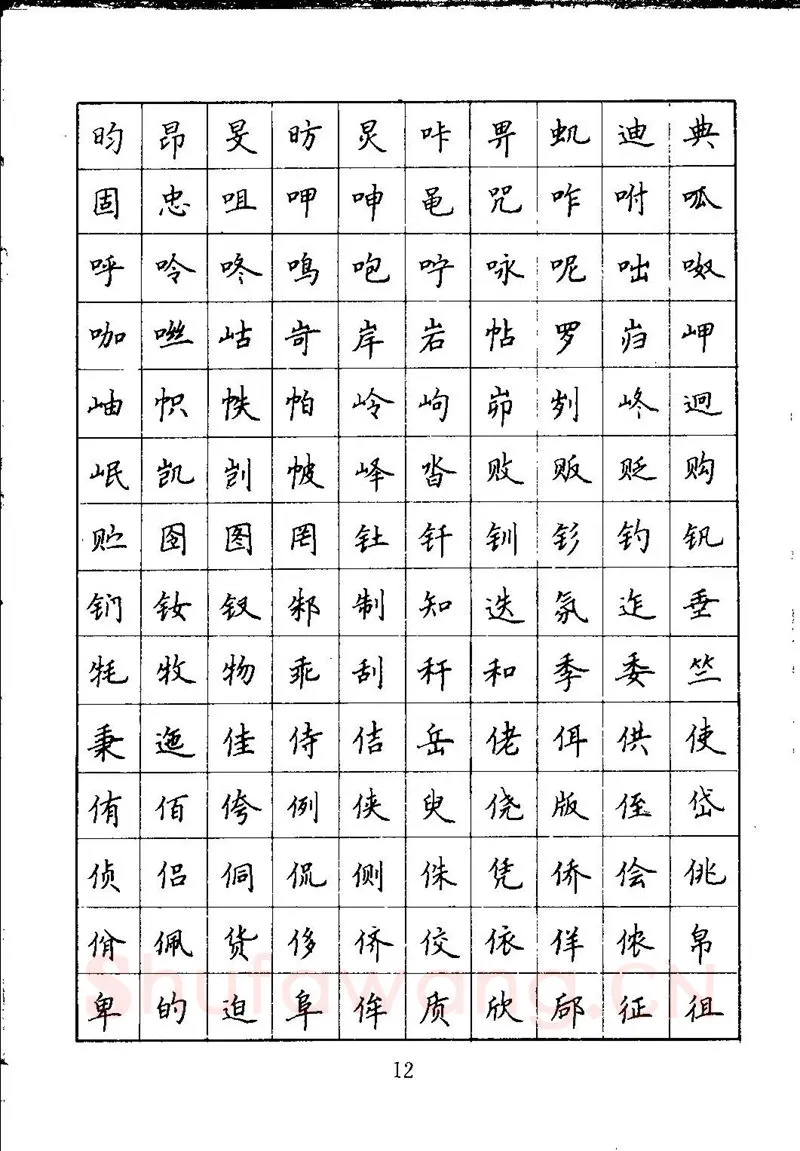 昀 昂 旻 昉 炅 咔 畀 虮 迪 典
固 忠 咀 呷 呻 黾 咒 咋 咐 呱
呼 呤 咚 鸣 咆 咛 咏 呢 咄 呶
咖 咝 岵 岢 岸 岩 帖 罗 岿 岬
岫 帜 帙 帕 岭 岣 峁 刿 峂 迥
岷 凯 剀 帔 峄 沓 败 贩 贬 购
贮 囹 图 罔 钍 钎 钏 钐 钓 钒
钔 钕 钗 邾 制 知 迭 氛 迮 垂
牦 牧 物 乖 刮 秆 和 季 委 竺
秉 迤 佳 侍 佶 岳 佬 佴 供 使
侑 佰 侉 例 侠 臾 侥 版 侄 岱
侦 侣 侗 侃 侧 侏 凭 侨 侩 佻
佾 佩 货 侈 侪 佼 依 佯 侬 帛
卑 的 迫 阜 侔 质 欣 郈 征 徂
Shufawang.CN
12